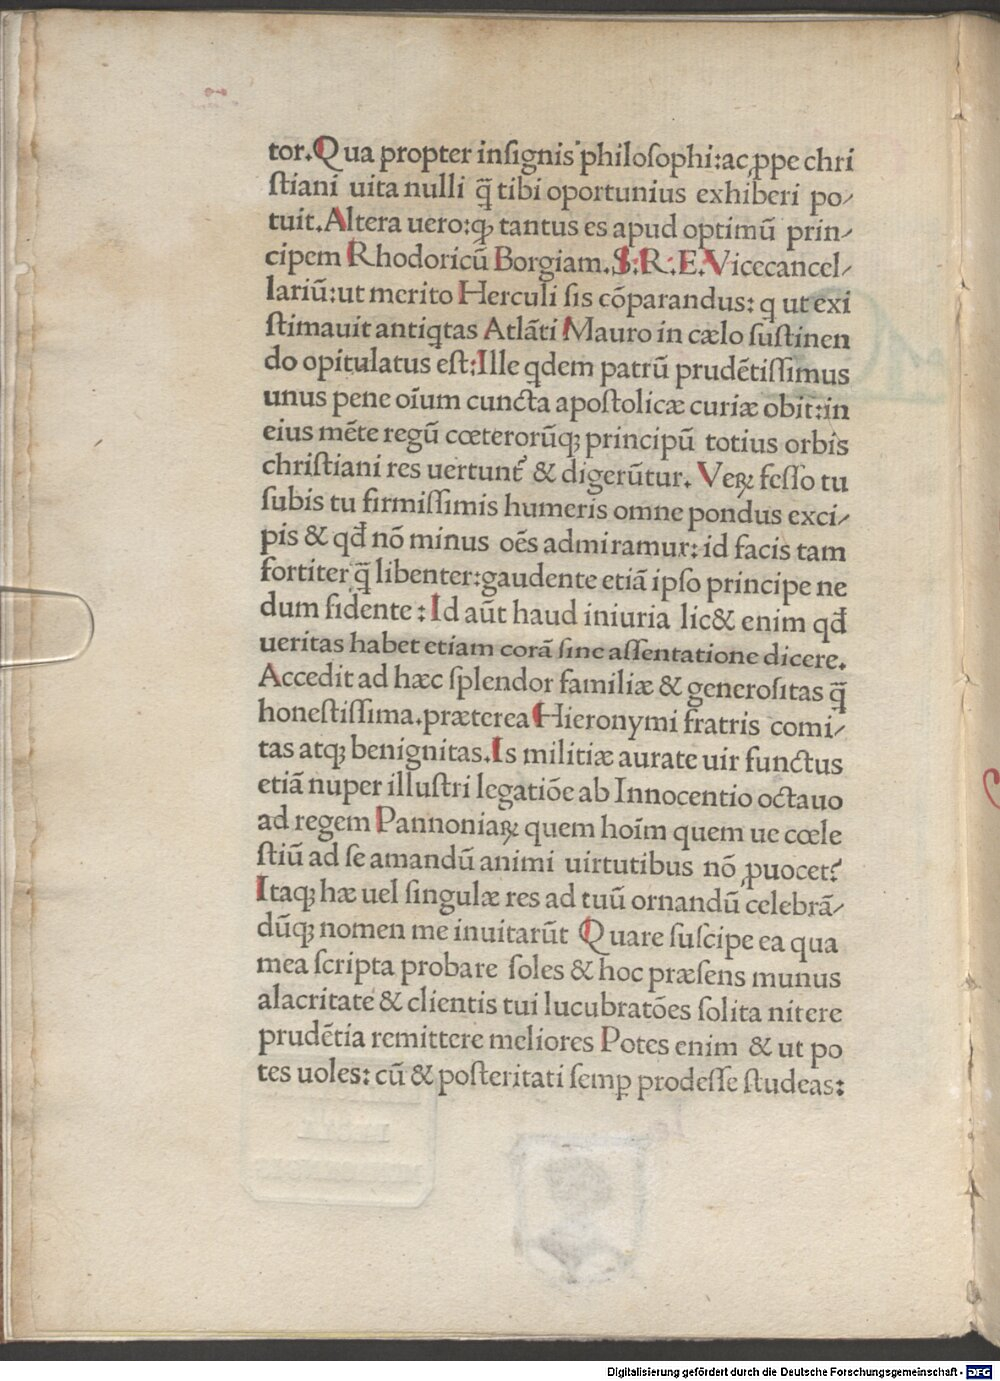 tor.Qua propter inſignis philoſophi:ac ꝓpe chri
ſtiani uita nulli q̃ tibi oportunius exhiberi po⸗
tuit.Altera uero:ꝙ tantus es apud optimũ prin⸗
cipem Rhodoricũ Borgiam.S:R.E.Vicecancel⸗
lariũ:ut merito Herculi ſis cõparandus: q ut exi
ſtimauit antiq̇tas Atlãti Mauro in cælo ſuſtinen
do opitulatus eſt:Ille q̇dem patrũ prudẽtiſſimus
unus pene oĩum cuncta apoſtolicæ curiæ obit:in
eius mẽte regũ cœterorũqꝫ principũ totius orbis
chriſtiani res uertunt̃ & digerũtur. Veꝝ feſſo tu
ſubis tu firmiſſimis humeris omne pondus exci⸗
pis & qđ nõ minus oẽs admiramur: id facis tam
fortiter q̃ libenter:gaudente etiã ipſo principe ne
dum fidente : Id aũt haud iniuria lic& enim qđ
ueritas habet etiam corã ſine aſſentatione dicere.
Accedit ad hæc ſplendor familiæ & generoſitas q̃
honeſtiſſima.præterea Hieronymi fratris comi⸗
tas atqꝫ benignitas.Is militiæ aurate uir functus
etiã nuper illuſtri legatiõe ab Innocentio octauo
ad regem Pannoniaꝝ quem hoĩm quem ue cœle
ſtiũ ad ſe amandũ animi uirtutibus nõ ꝓuocet?
Itaqꝫ hæ uel ſingulæ res ad tuũ ornandũ celebrã⸗
dũqꝫ nomen me inuitarũt Quare ſuſcipe ea qua
mea ſcripta probare ſoles & hoc præſens munus
alacritate & clientis tui lucubratões ſolita nitere
prudẽtia remittere meliores Potes enim & ut po
tes uoles: cũ & poſteritati ſemꝑ prodeſſe ſtudeas:
Digitalisierung gefördert durch die Deutsche Forschungsgemeinschaft - DFG